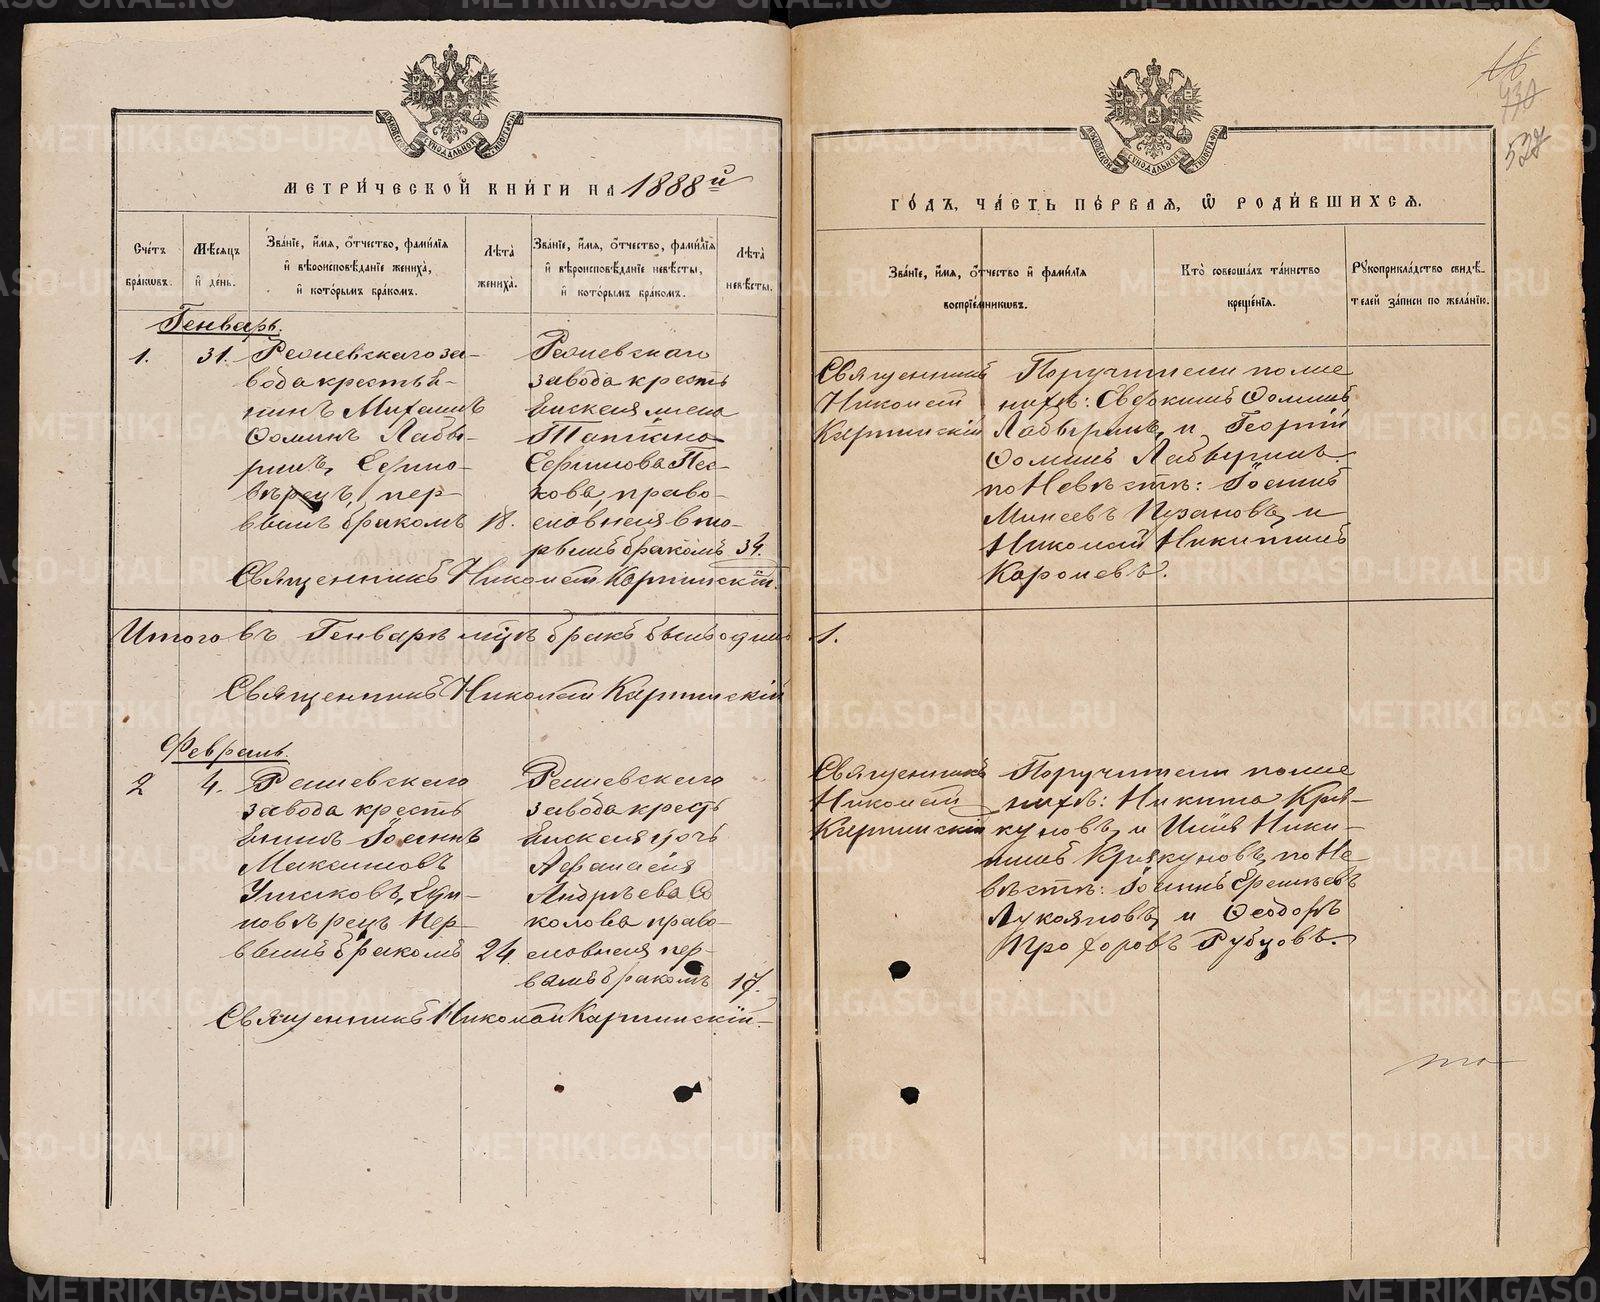 МЕТРИ́ЧЕСКОЙ КНИ́ГИ НА 1888й
Сче́тъ бра́кѡвъ.
Мѣ́сяцъ и҆ де́нь.
Зва́нїе, и҆́мя, ѻ҆́тчество, фами́лїя
и҆ вѣроисповѣ́данїе жениха̀,
и҆ кото́рымъ бра́комъ.
Лѣта̀ жениха̀.
Зва́нїе, и҆́мя, ѻ҆́тчество, фами́лїя
и҆ вѣроисповѣ́данїе невѣ́сты,
и҆ кото́рымъ бра́комъ.
Лѣта̀ невѣ́сты.
Генварь.
1. 31.
Режевскаго за-
вода крестья-
нинъ Михаилъ
Ѳоминъ Лабы-
ринъ, Едино-
вѣрецъ, пер-
вымъ бракомъ 18.
Режевскаго
завода кресть
янская
Татіана
Ефимова Пес-
кова, право-
славная вто-
рымъ бракомъ 34.
Священникъ Николай Карпинскій.
Итого въ Генварѣ мцѣ бракъ былъ одинъ 1.
Священникъ Николай Карпинскій
Февраль
2 4.
Режевскаго
завода кресть
янинъ Іоаннъ
Максимовъ
Ушаковъ, Еди-
новѣрецъ пер-
вымъ бракомъ 24
Режевскаго
завода крест
янская дочь
Аѳанасія
Андрѣева Со
колова право-
славная пер-
вымъ бракомъ 17.
Священникъ Николай Карпинскій
ГО́ДЪ, ЧА́СТЬ ПЕ́РВАЯ, Ѡ҆ РОДИ́ВШИХСЯ.
Зва́нїе, и҆́мя, ѻ҆́тчество и҆ фами́лїя
воспрїе́мникѡвъ.
Кто̀ соверша́лъ та́инство
креще́нїя.
Рꙋкоприкла́дство свидѣ́-
телей за́писи по жела́нїю.
Священникъ
Николай
Карпинскій
Поручители по же
нихѣ: Евдокимъ Ѳоминъ
Лабыринъ, и Георгій
Ѳоминъ Лабыринъ
по Невѣстѣ: Іоаннъ
Минеевъ Пузановъ, и
Николай Никитинъ
Королевъ.
Священникъ
Николай
Карпинскій
Поручители по же
нихѣ: Никита Кря-
куновъ, и Илія Ники-
тинъ Крякуновъ, по Не
вѣстѣ: Іоаннъ Еремѣевъ
Лукояновъ, и Ѳеодоръ
Трофоровъ Рубцовъ.
METRIKI.GASO-URAL.RU